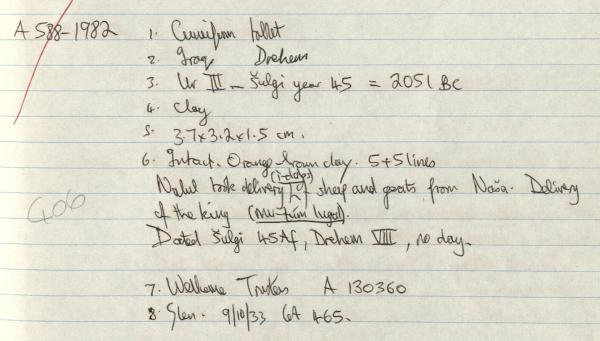 A 588-1982 1. Cuneiform tablet
2. Iraq Drehem
3. Ur III - Šulgi year 45 = 2051 BC
4. Clay
5. 3.7x3.2x1.5 cm.
6. Intact. Orange brown clay. 5+5 lines
(i-dab5)
Nalul took delivery of sheep and goats from Naša. Delivery
of the king (mu-túm lugal).
Dated Šulgi 45Af, Drehem VIII, no day.
406
7. Wellcome Trustees A 130360
8. Glen. 9/10/33 GA 465.